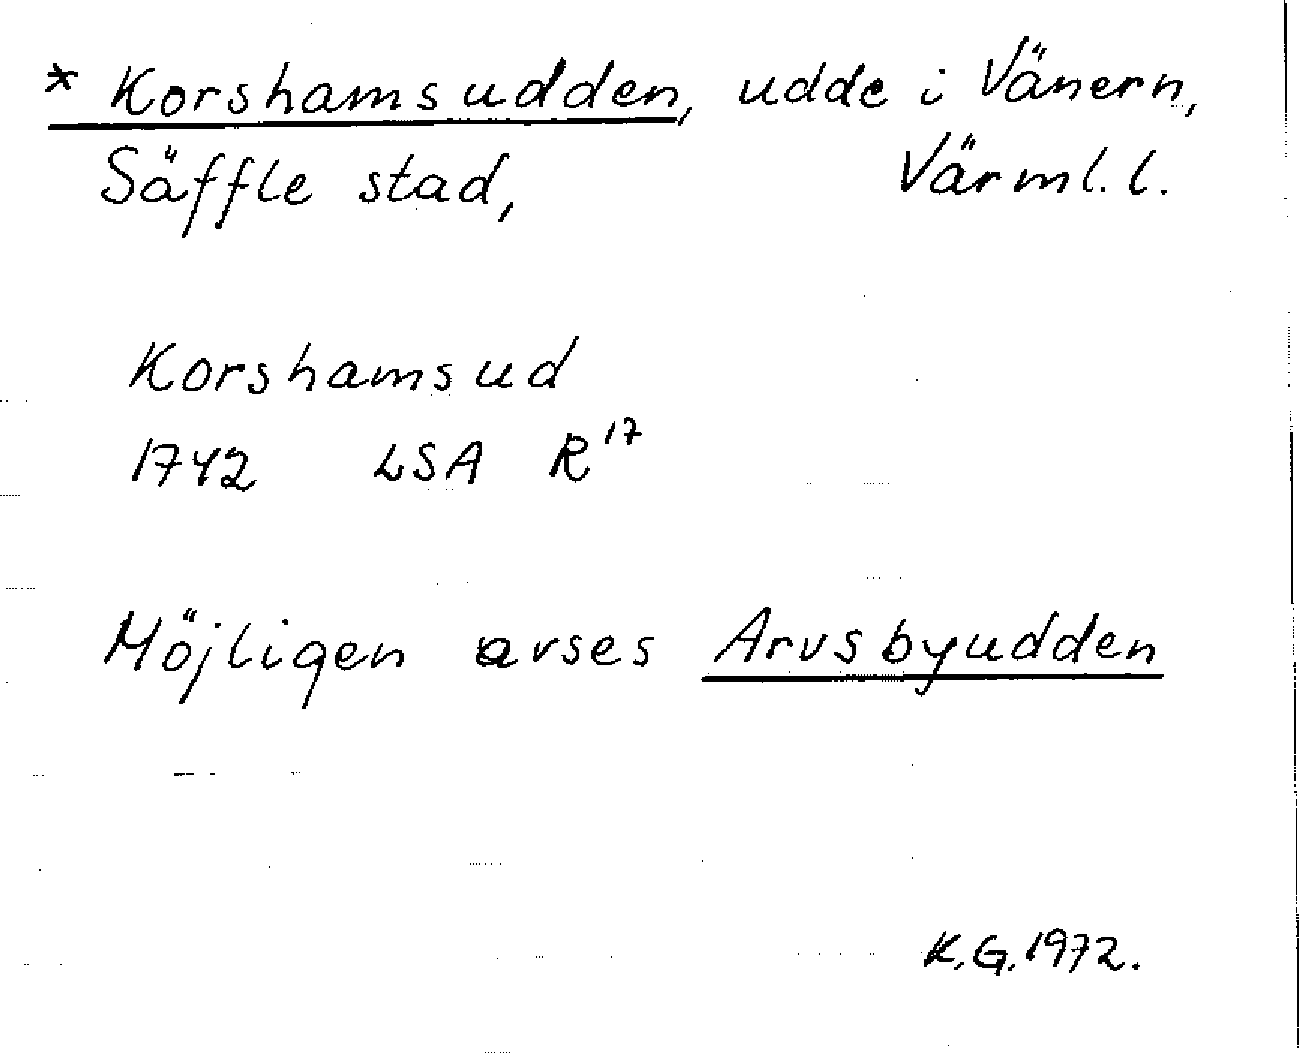 * Korshamsudden, udde i Vänern,
Säffle stad, Värml. l.
Korshamsud
1742 LSA R¹⁷
Möjligen avses Arvsbyudden
K.G. 1972.